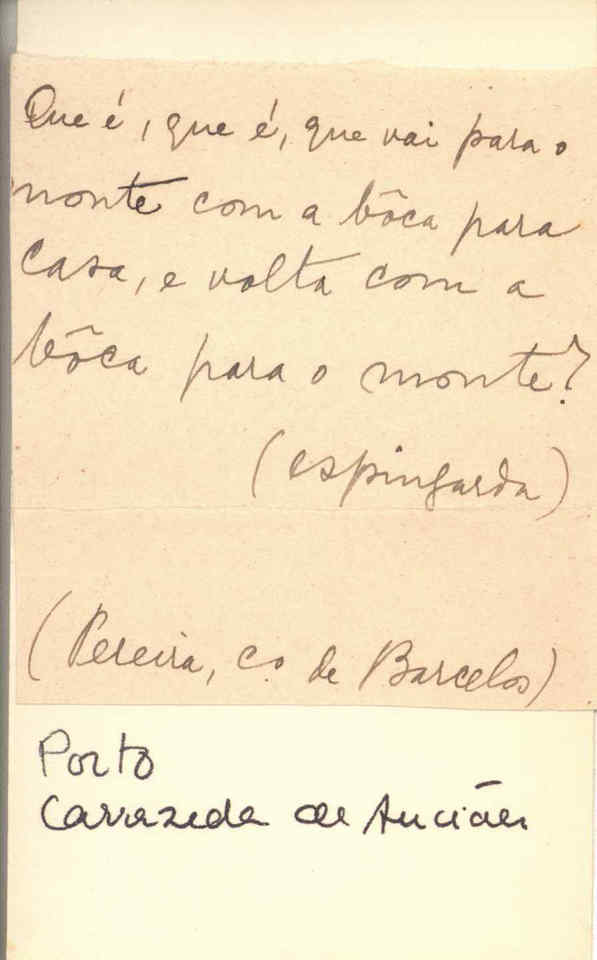 Que é, que é, que vai para o
monte com a bôca para
casa, e volta com a
bôca para o monte?
(espingarda)
(Pereira, co de Barcelos)
Porto
Carrazeda de Anciães